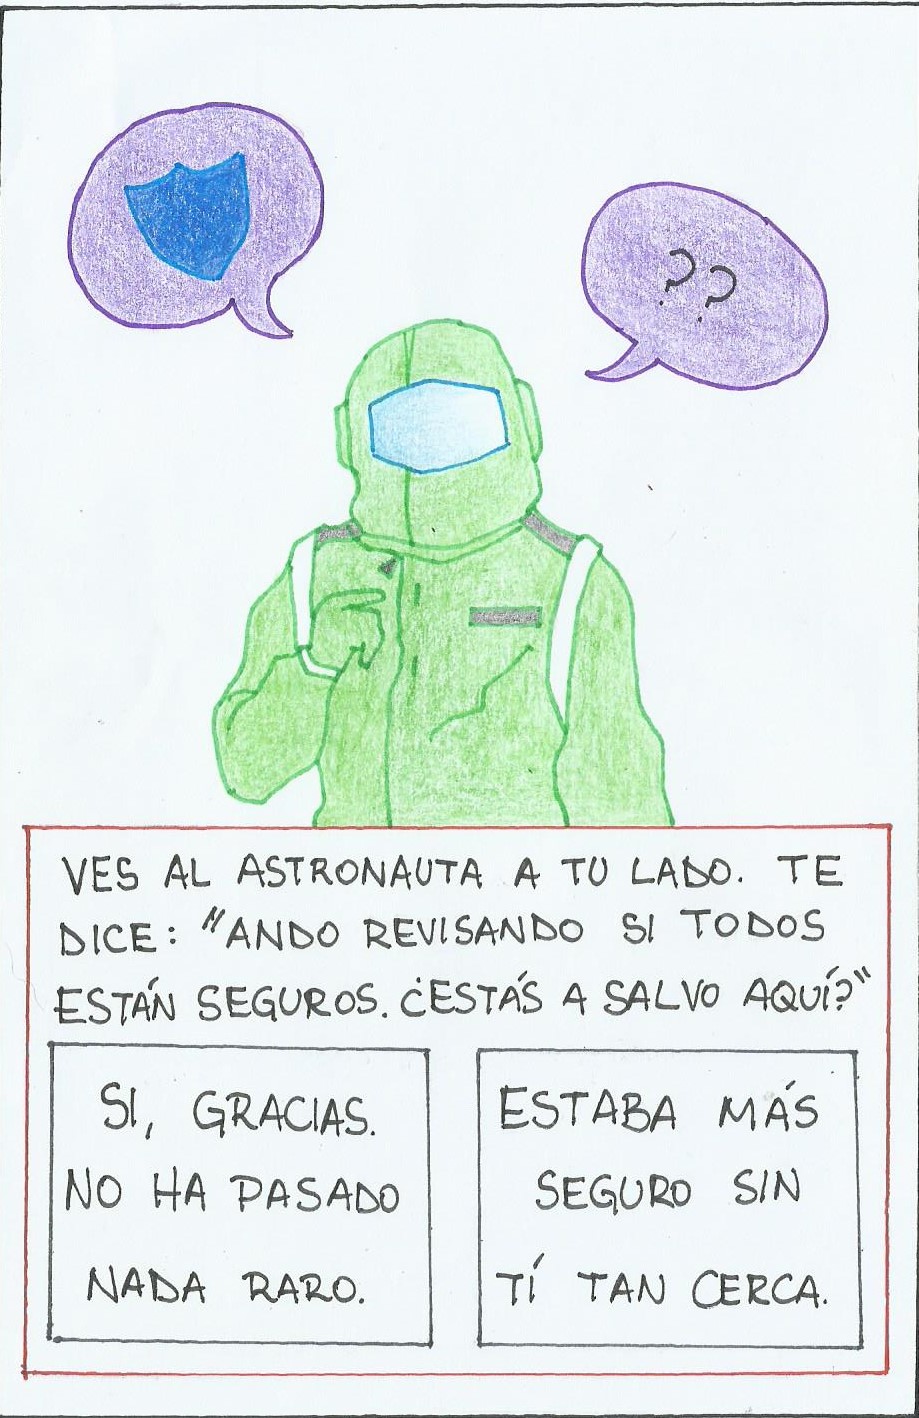 ??
VES AL ASTRONAUTA A TU LADO. TE
DICE: "ANDO REVISANDO SI TODOS
ESTÁN SEGUROS. ¿ESTÁS A SALVO AQUÍ?"
SI, GRACIAS.
NO HA PASADO
NADA RARO.
ESTABA MÁS
SEGURO SIN
TÍ TAN CERCA.